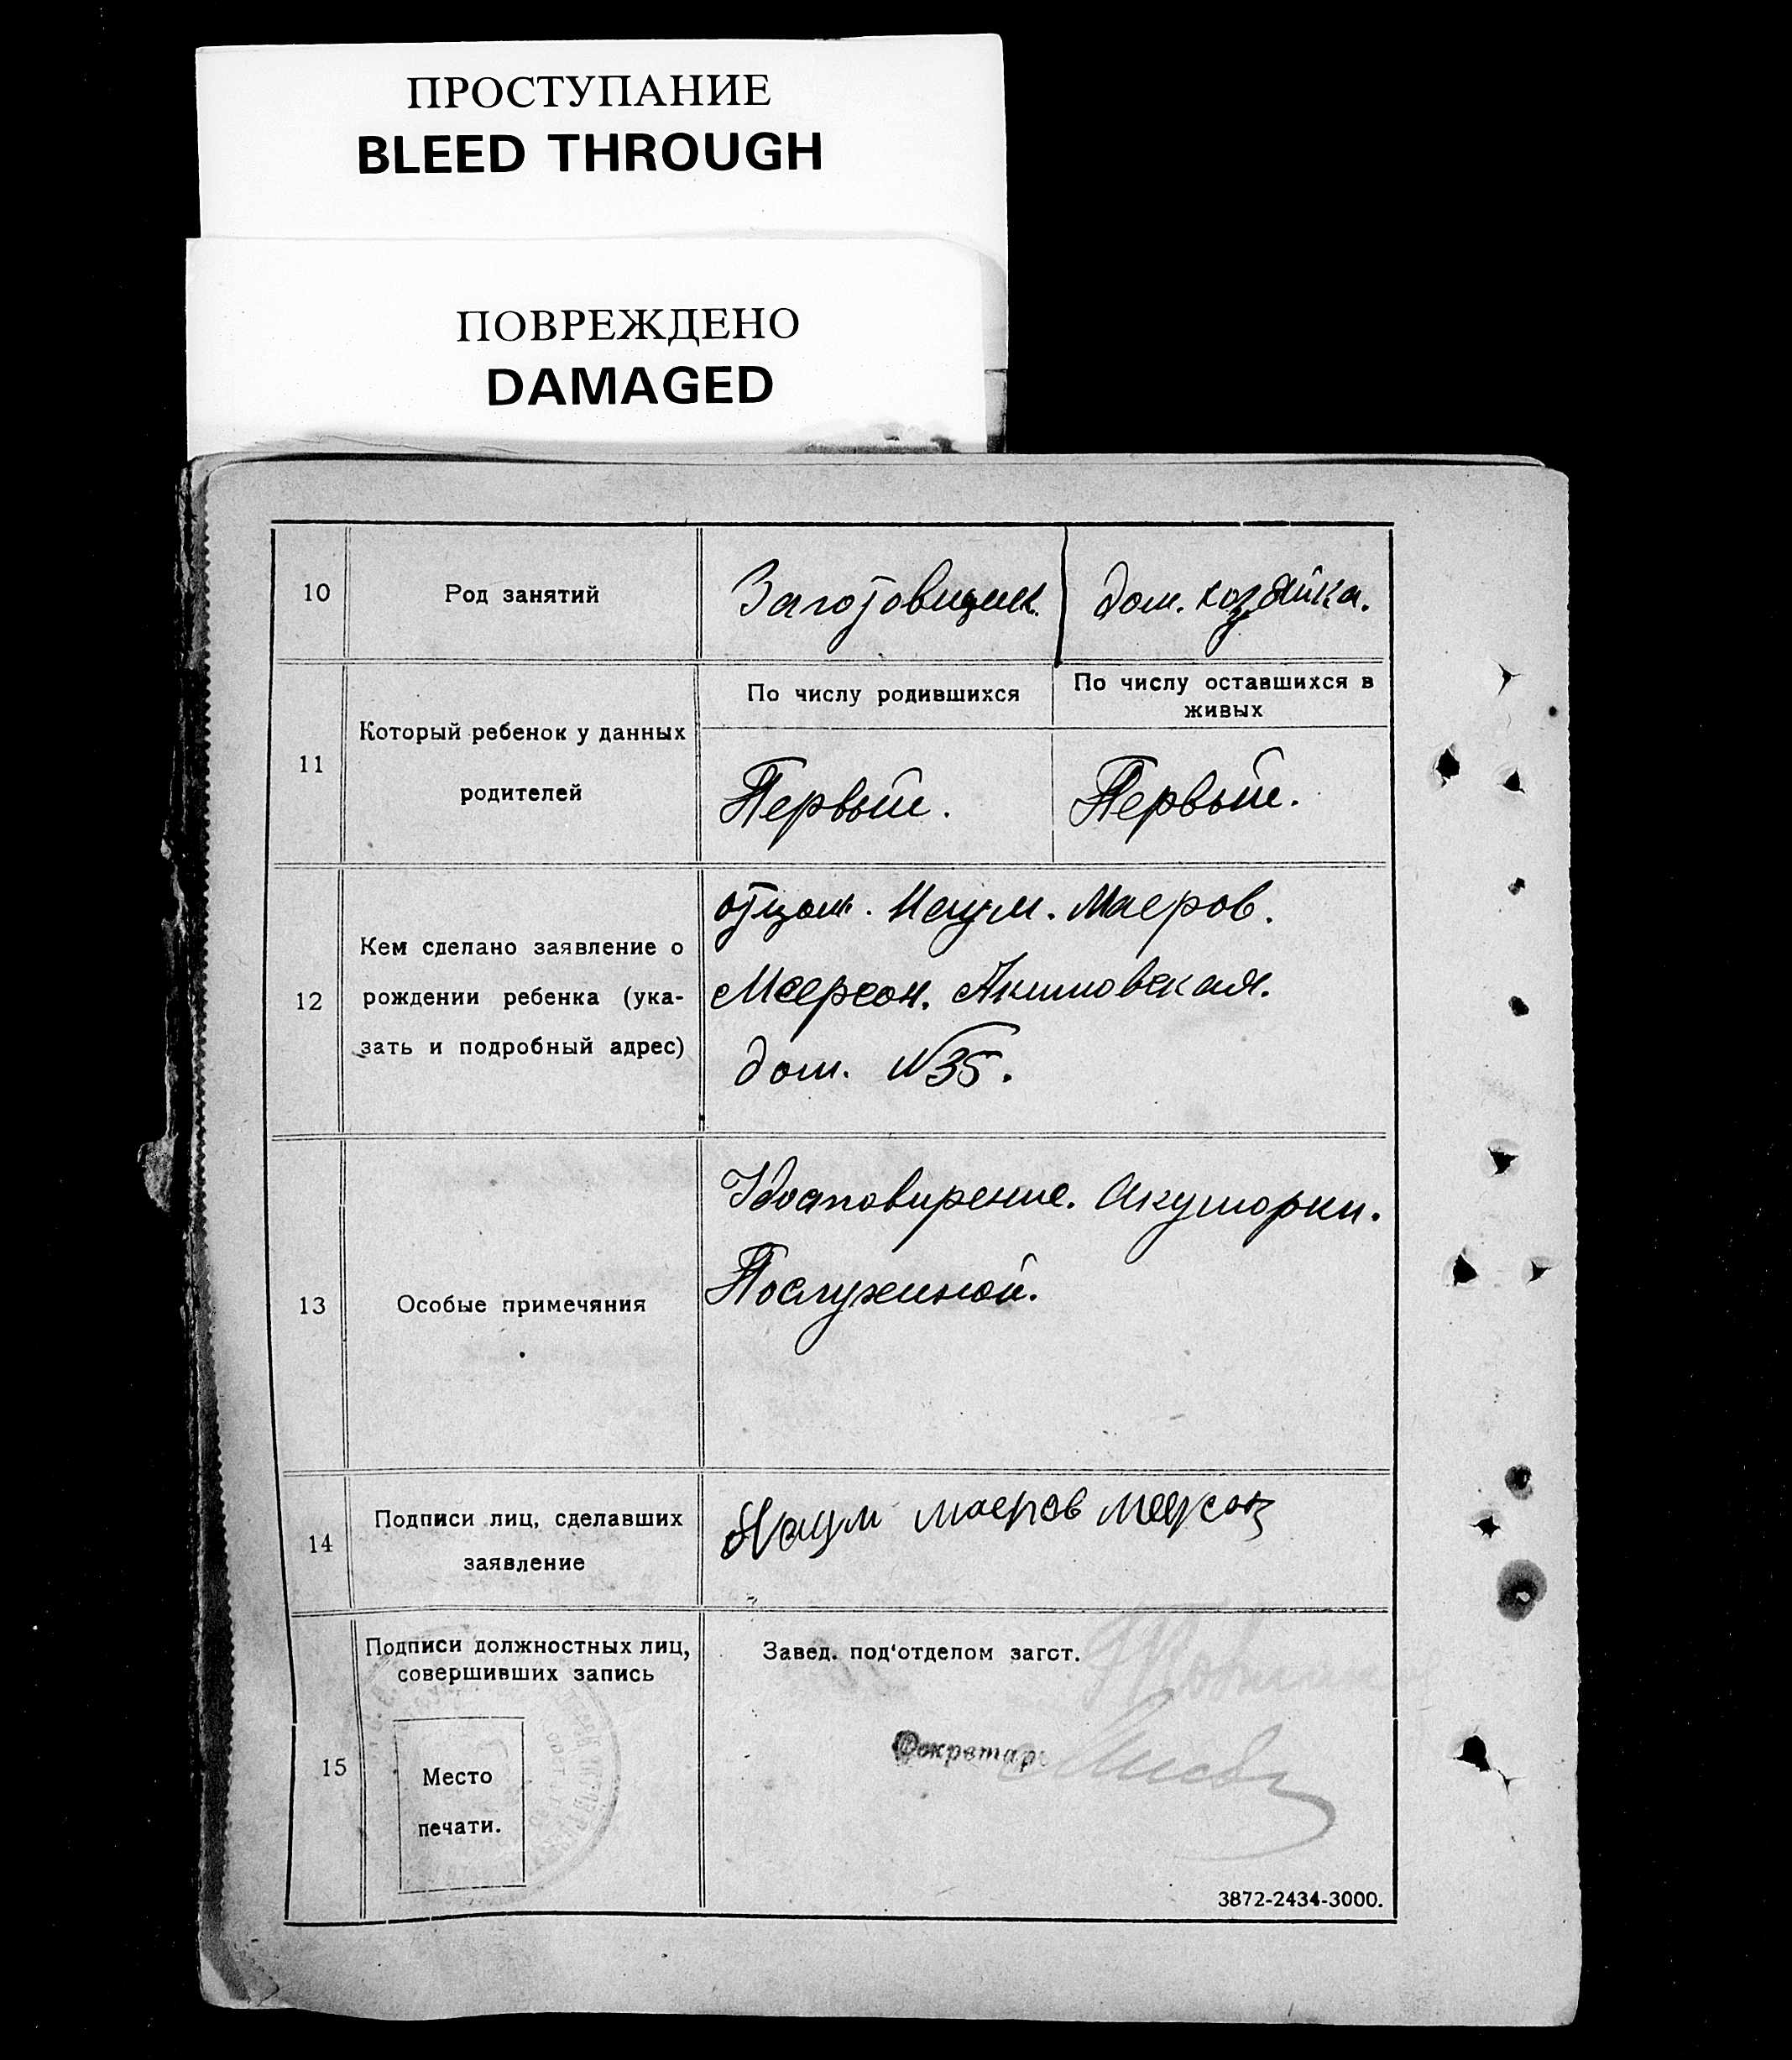 ПРОСТУПАНИЕ
BLEED THROUGH
ПОВРЕЖДЕНО
DAMAGED
10
Род занятий
Заготовщик.
дом. хозяйка.
11
Который ребенок у данных
родителей
По числу родившихся
Первый.
По числу оставшихся в
живых
Первый.
12
Кем сделано заявление о
рождении ребенка (ука-
зать и подробный адрес)
отцом. Наум. Маеров.
Меерсон. Акимовская.
дом. №35.
13
Особые примечяния
Акушорки.
14
Подписи лиц, сделавших
заявление
Наум маеров меерсон
15
Подписи должностных лиц,
совершивших запись
Место
печати.
Завед. под'отделом загст.
Секретарь
3872-2434-3000.